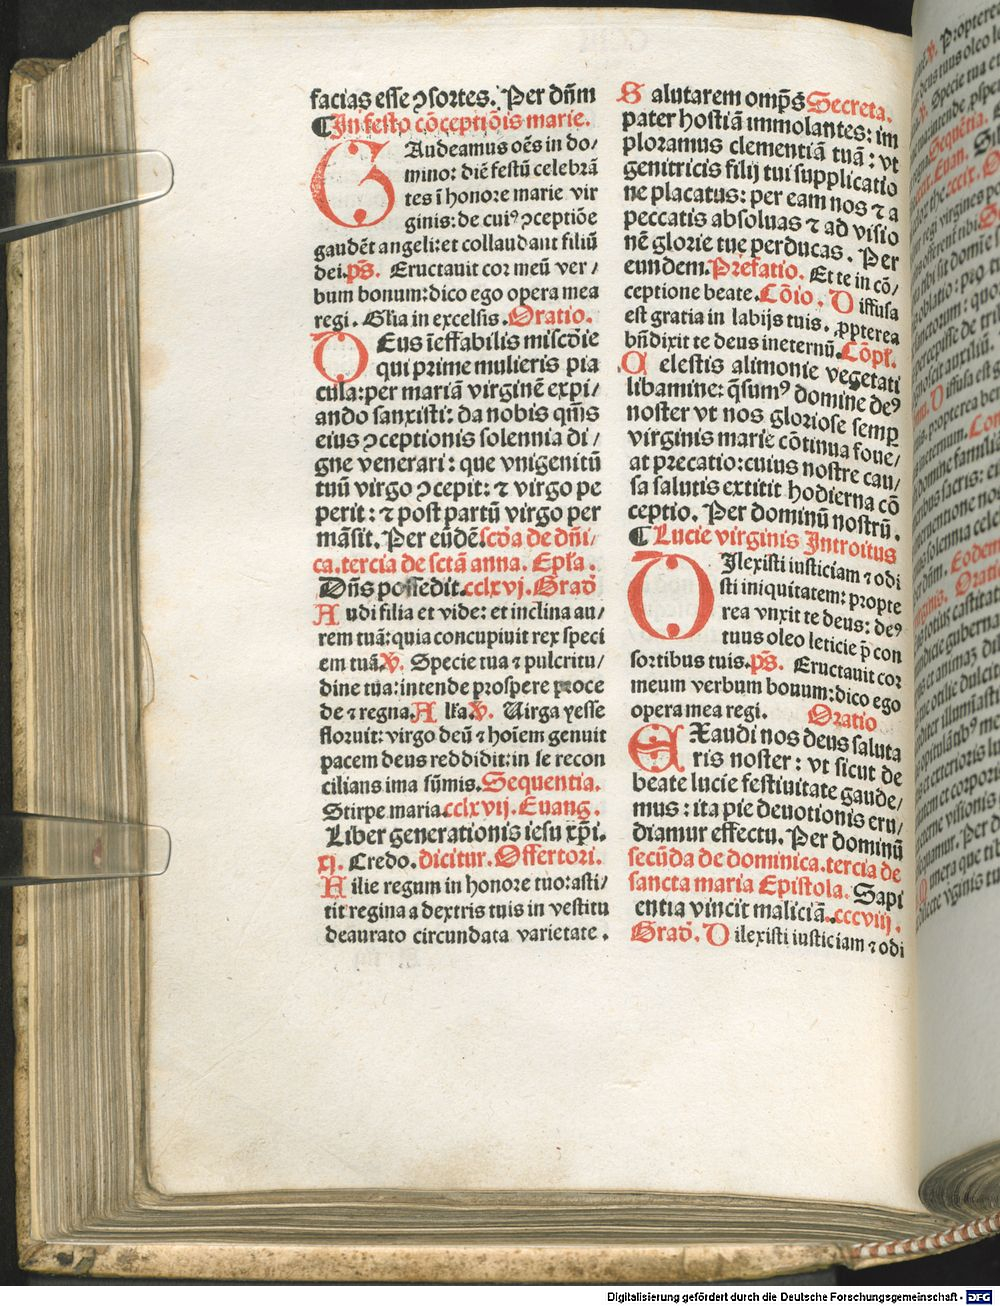 facias esse ꝯsortes. Per dn̄m
¶In festo cōceptiōis marie.
GAudeamus oēs in do/
mino: diē festū celebrā
tes ī honore marie vir
ginis: de cuiꝰ ꝯceptiōe
gaudēt angeli: et collaudant filiū
dei. ps̄. Eructauit cor meū ver/
bum bonum: dico ego opera mea
regi. Glia in excelsis. Oratio.
DEus īeffabilis miscd̄ie
qui prime mulieris pia
cula: per mariā virginē expi/
ando sanxisti: da nobis qm̄s
eius ꝯceptionis solennia di/
gne venerari: que vnigenitū
tuū virgo ꝯcepit: ⁊ virgo pe
perit: ⁊ post partū virgo per
māsit. Per eūdē. scd̄a de dn̄i/
ca. tercia de sctā anna. Epl̄a.
Dn̄s possedit. cclxvj. Grad̄
Audi filia et vide: et inclina au/
rem tuā: quia concupiuit rex speci
em tuā. V̄. Specie tua ⁊ pulcritu/
dine tua: intende prospere proce
de ⁊ regna. Alla. V̄. Uirga yesse
floruit: virgo deū ⁊ hoīem genuit
pacem deus reddidit: in se recon
cilians ima sūmis. Sequentia.
Stirpe maria. cclxvij. Euang.
Liber generationis iesu xp̄i.
xj. Credo. dicitur. Offertori.
Filie regum in honore tuo: asti/
tit regina a dextris tuis in vestitu
deaurato circundata varietate.
Salutarem omp̄s Secreta.
pater hostiā immolantes: im
ploramus clementiā tuā: vt
genitricis filij tui supplicatio
ne placatus: per eam nos ⁊ a
peccatis absoluas ⁊ ad visio
nē glorie tue perducas. Per
eundem. Prefatio. Et te in cō/
ceptione beate. Cōio. Diffusa
est gratia in labijs tuis. ꝓpterea
bn̄dixit te deus in eternū. Cōpl.
Celestis alimonie vegetati
libamine: q̄sumꝰ domine deꝰ
noster vt nos gloriose semꝑ
virginis marie cōtinua foue/
at precatio: cuius nostre cau/
sa salutis extitit hodierna cō
ceptio. Per dominū nostrū.
¶Lucie virginis Introitus
DIlexisti iusticiam ⁊ odi
sti iniquitatem: propte
rea vnxit te deus: deꝰ
tuus oleo leticie p̄ con
sortibus tuis. ps̄. Eructauit cor
meum verbum bonum: dico ego
opera mea regi. Oratio
EXaudi nos deus saluta
ris noster: vt sicut de
beate lucie festiuitate gaude/
mus: ita pie deuotionis eru/
diamur effectu. Per dominū
secūda de dominica. tercia de
sancta maria Epistola. Sapi
entia vincit maliciā. cccviij.
Grad̄. Dilexisti iusticiam ⁊ odi
Digitalisierung gefördert durch die Deutsche Forschungsgemeinschaft - DFG